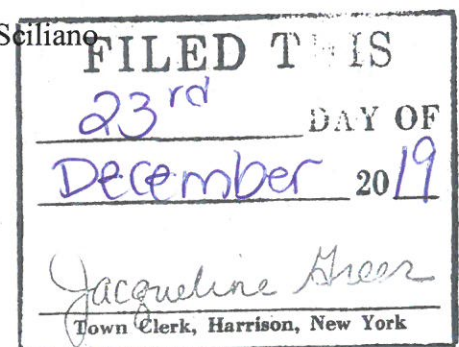 Sciliano
FILED THIS
23rd DAY OF
December 2019
Jacqueline Greer
Town Clerk, Harrison, New York